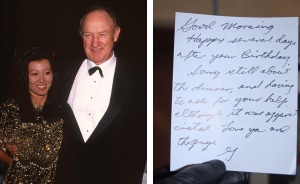 Good Morning
Happy several days
after your Birthday
Sorry still about
the dinner, and having
to ask for your help
although it was appre
ciated Love you and
the